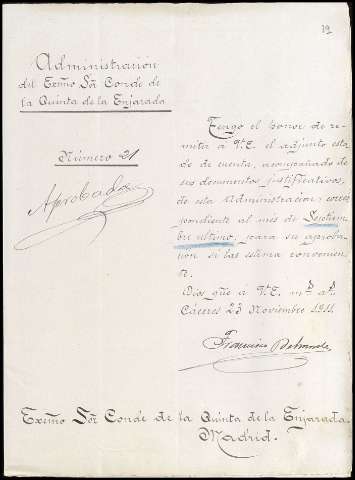 12
Administración
del Exmo Sór Conde de
la Quinta de la Enjarada
Número 21
Aprobada
Tengo el honor de re-
mitir á V.E. el adjunto esta
do de cuenta, acompañado de
sus documentos justificativos,
de esta Administración, corres
pondiente al mes de Septiem
bre último, para su aproba
cion si las estima convenien
Dios gue á V.E. ms as.
Cáceres 23 Noviembre 1911.
Francisco
Exmo Sór Conde de la Quinta de la Enjarada.
Madrid.